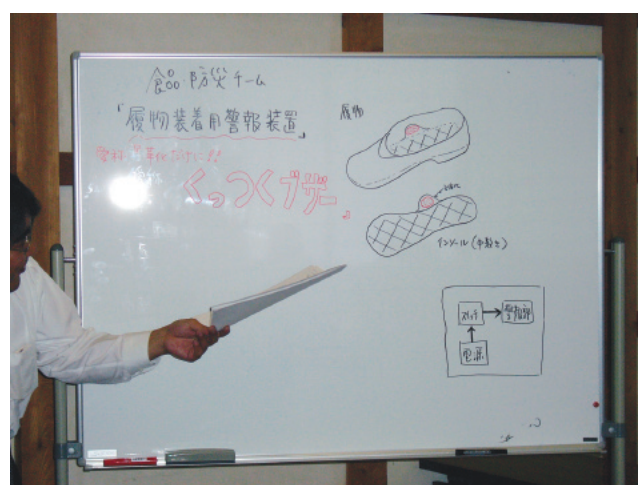 食品・防災チーム
「履物装着用警報装置」
くっつくブザー」
履物
インソール(中敷き)
スイッチ
警報部
電源